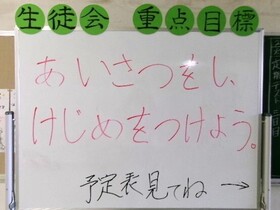 生徒会 重点目標
あいさつをし、
けじめをつけよう。
予定表見てね →